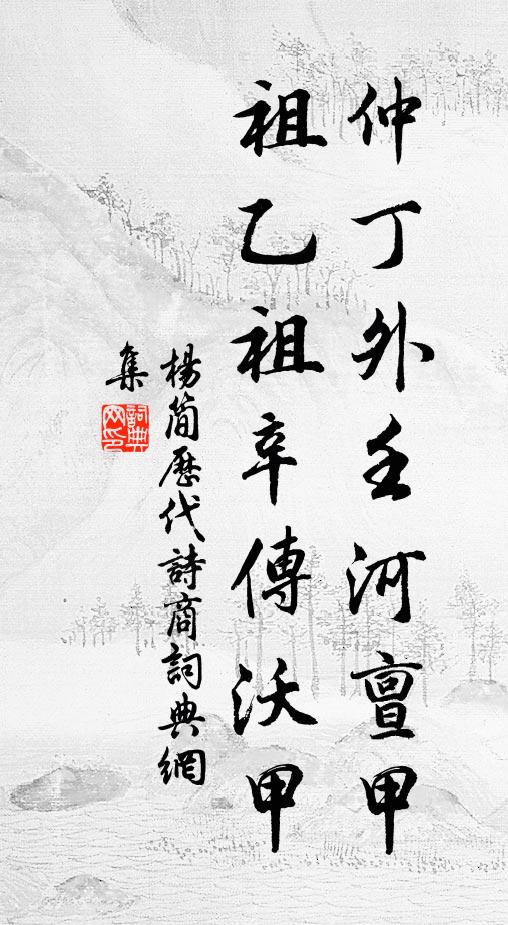 仲丁外壬河亶甲
祖乙祖辛傳沃甲
楊簡歷代詩商詞典網
集
詞典
网印